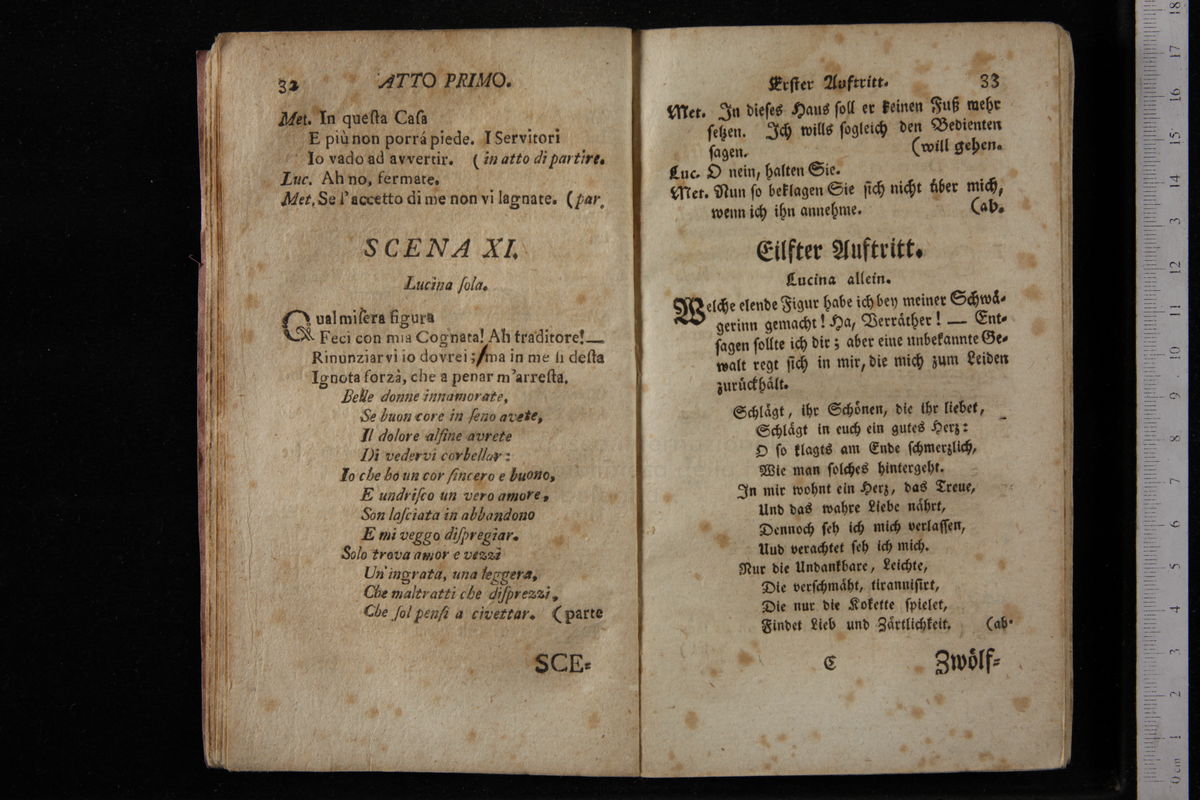 32 ATTO PRIMO.
Met. In queſta Caſa
E più non porrá piede. I Servitori
Io vado ad avvertir. (in atto di partire.
Luc. Ah no, fermate.
Met. Se l'accetto di me non vi lagnate. (par.
SCENA XI.
Lucina ſola.
Qual miſera figura
Feci con mia Cognata! Ah traditore! —
Rinunziarvi io dovrei; ma in me ſi deſta
Ignota forzà, che a penar m'arreſta.
Belle donne innamorate,
Se buon core in ſeno avete,
Il dolore alfine avrete
Di vedervi corbellar:
Io che ho un cor ſincero e buono,
E undriſco un vero amore,
Son laſciata in abbandono
E mi veggo diſpregiar.
Solo trova amor e vezzi
Un'ingrata, una leggera,
Che maltratti che diſprezzi,
Che ſol penſi a civettar. (parte
SCE=
Erſter Auftritt. 33
Met. In dieſes Haus ſoll er keinen Fuß mehr
ſetzen. Ich wills ſogleich den Bedienten
ſagen. (will gehen.
Luc. O nein, halten Sie.
Met. Nun ſo beklagen Sie ſich nicht über mich,
wenn ich ihn annehme. (ab.
Eilfter Auftritt.
Lucina allein.
Welche elende Figur habe ich bey meiner Schwä-
gerinn gemacht! Ha, Verräther! — Ent-
ſagen ſollte ich dir; aber eine unbekannte Ge-
walt regt ſich in mir, die mich zum Leiden
zurückhält.
Schlägt, ihr Schönen, die ihr liebet,
Schlägt in euch ein gutes Herz:
O ſo klagts am Ende ſchmerzlich,
Wie man ſolches hintergeht.
In mir wohnt ein Herz, das Treue,
Und das wahre Liebe nährt,
Dennoch ſeh ich mich verlaſſen,
Uud verachtet ſeh ich mich.
Nur die Undankbare, Leichte,
Die verſchmäht, tiranniſirt,
Die nur die Kokette ſpielet,
Findet Lieb und Zärtlichkeit. (ab.
C Zwölf=
0 cm 1 2 3 4 5 6 7 8 9 10 11 12 13 14 15 16 17 18